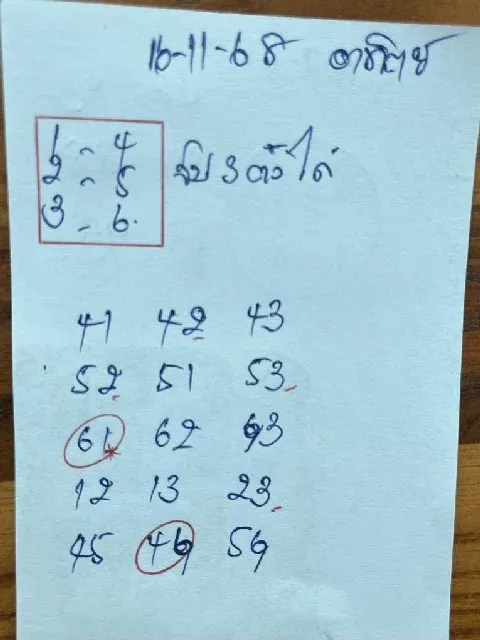 16-11-68 อาทิตย์
1 - 4
2 - 5
3 - 6
จับ 3 ตัวได้
41 42 43
52 51 53
61 62 63
12 13 23
45 46 56